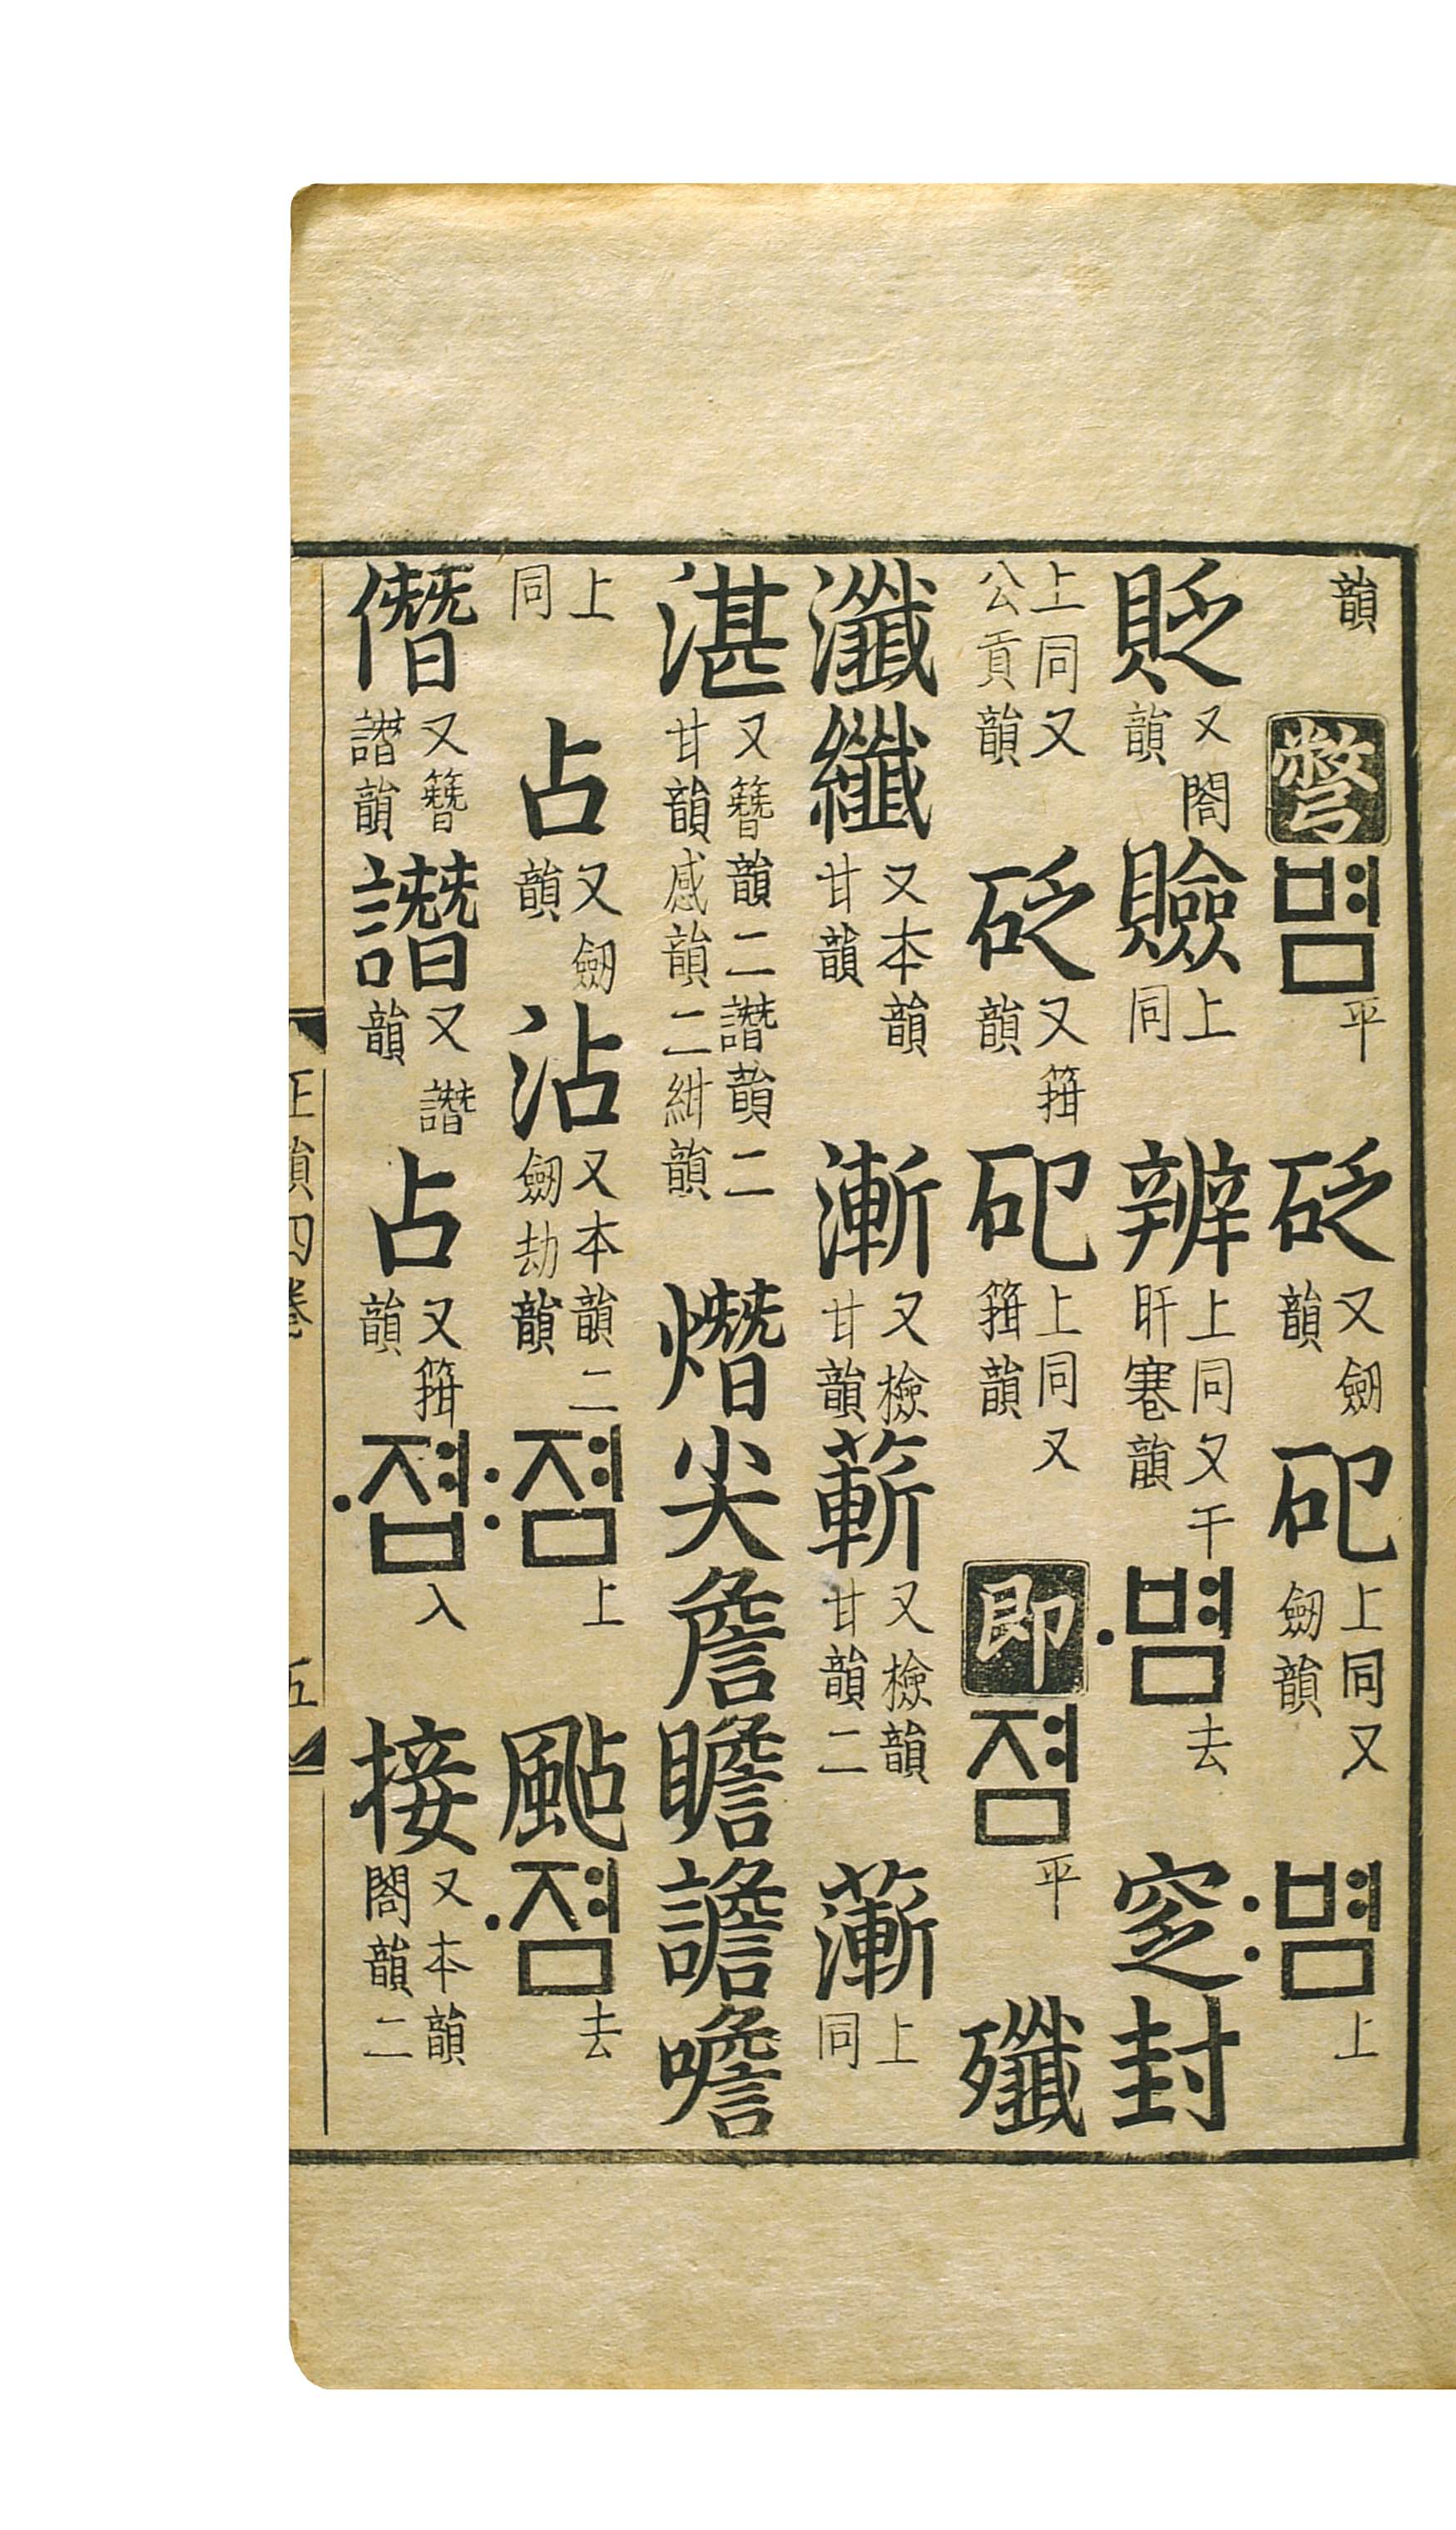 韻 彆 볌 平 砭 又劒韻 上同又劒韻 :볌 上
貶 又閤韻 上同 辨 上同又干旰寋韻 ·볌 去 窆 封
上同又公貢韻 砭 又箝韻 上同又箝韻 即 졈 平 殲
瀸 纖 又本韻甘韻 漸 又檢甘韻 蔪 又檢韻甘韻二 上同
湛 又簪韻二譖韻二甘韻感韻二紺韻 熸 尖 詹 瞻 譫 噡
上同 占 又劒韻 沾 又本韻二劒劫韻 :졈 上 颭 ·졈 去
僭 又簪譖韻 譖 又譖韻 占 又箝韻 ·졈 入 接 又本韻閤韻二
正韻四卷 五